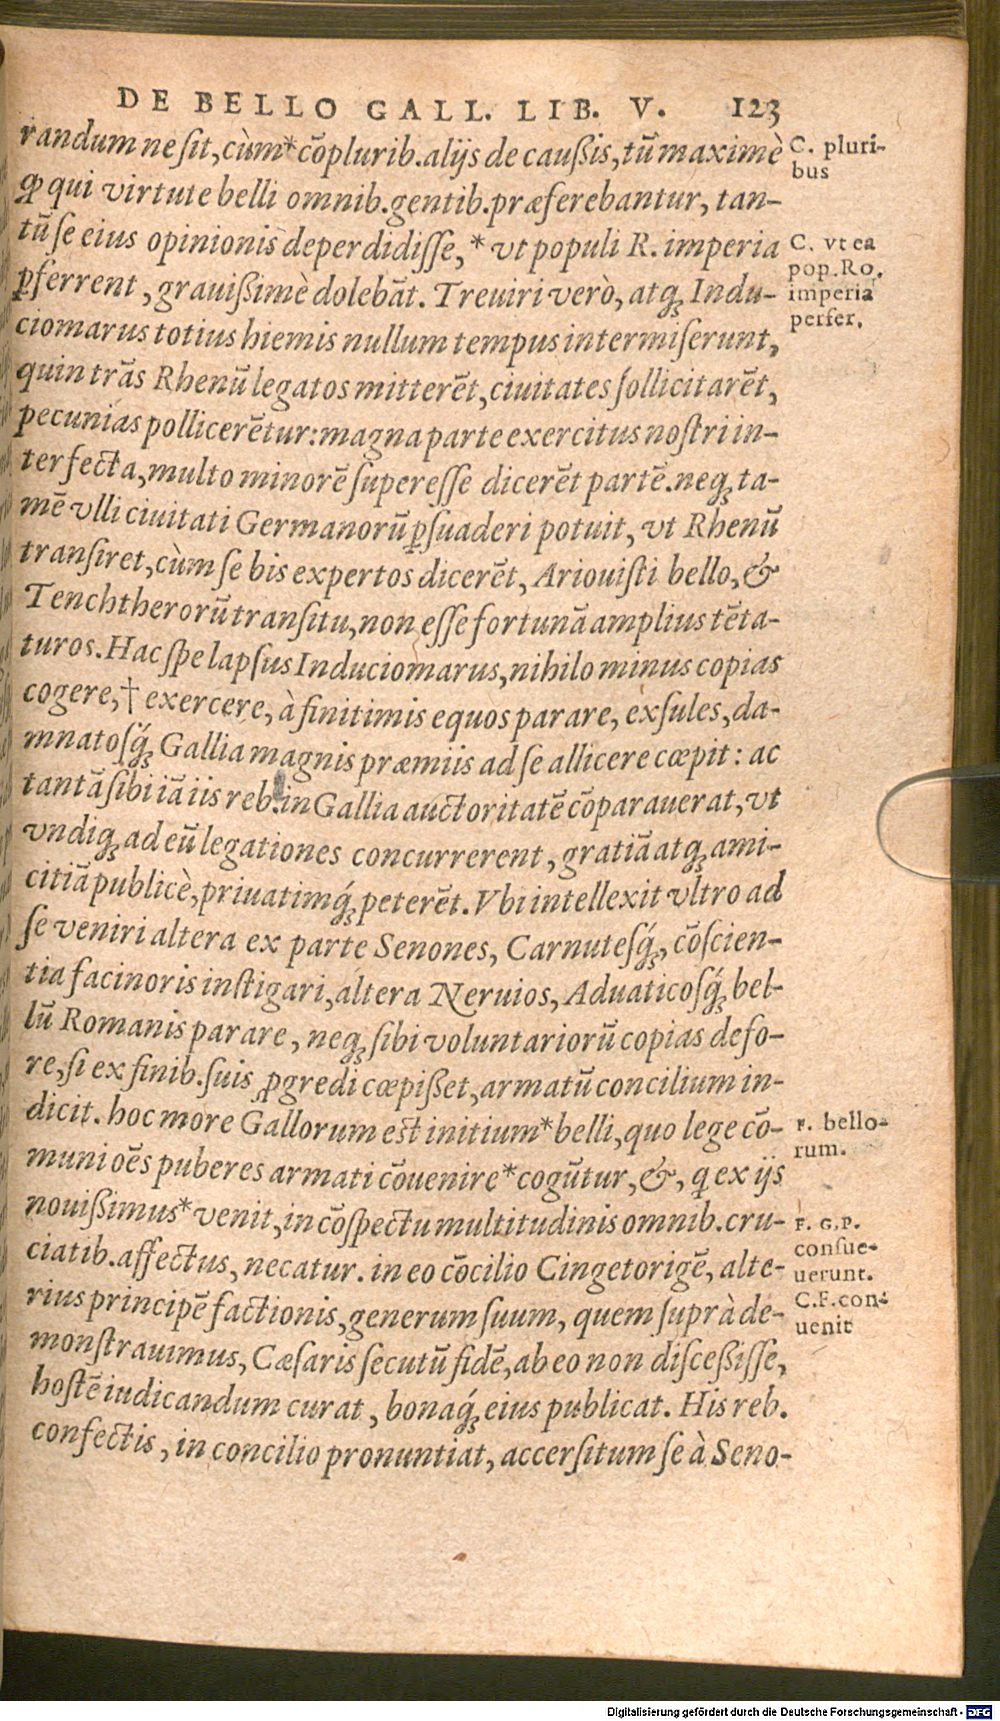 DE BELLO GALL. LIB. V. 123
randum ne ſit, cùm* cõplurib. alijs de cauſsis, tũ maximè
ꝙ qui virtute belli omnib. gentib. præferebantur, tan-
tũ ſe eius opinionis deperdidiſſe, * vt populi R. imperia
ꝑferrent, grauiſsimè dolebãt. Treuiri verò, atqꝫ Indu-
ciomarus totius hiemis nullum tempus intermiſerunt,
quin trãs Rhenũ legatos mitterẽt, ciuitates ſollicitarẽt,
pecunias pollicerẽtur: magna parte exercitus noſtri in-
terfecta, multo minorẽ ſupereſſe dicerẽt partẽ. neqꝫ ta-
mẽ vlli ciuitati Germanorũ ꝑſuaderi potuit, vt Rhenũ
tranſiret, cùm ſe bis expertos dicerẽt, Ariouiſti bello, &
Tenchtherorũ tranſitu, non eſſe fortunã amplius tẽta-
turos. Hac ſpe lapſus Induciomarus, nihilo minus copias
cogere, † exercere, à finitimis equos parare, exſules, da-
mnatoſqꝫ́ Gallia magnis præmiis ad ſe allicere cœpit: ac
tantã ſibi iã iis reb. in Gallia auctoritatẽ cõparauerat, vt
vndiqꝫ ad eũ legationes concurrerent, gratiã atqꝫ ami-
citiã publicè, priuatimqꝫ́ peterẽt. Vbi intellexit vltro ad
ſe veniri altera ex parte Senones, Carnuteſqꝫ́, cõſcien-
tia facinoris inſtigari, altera Neruios, Aduaticoſqꝫ́ bel-
lũ Romanis parare, neqꝫ ſibi voluntariorũ copias defo-
re, ſi ex finib. ſuis ꝓgredi cœpiſſet, armatũ concilium in-
dicit. hoc more Gallorum eſt initium* belli, quo lege cõ-
muni oẽs puberes armati cõuenire* cogũtur, &, q ex ijs
nouiſsimus* venit, in cõſpectu multitudinis omnib. cru-
ciatib. affectus, necatur. in eo cõcilio Cingetorigẽ, alte-
rius principẽ factionis, generum ſuum, quem ſuprà de-
monſtrauimus, Cæſaris ſecutũ fidẽ, ab eo non diſceſſiſſe,
hoſtẽ iudicandum curat, bonaqꝫ́ eius publicat. His reb.
confectis, in concilio pronuntiat, accerſitum ſe à Seno-
C. pluri-
bus
C. vt ea
pop. Ro.
imperia
perfer.
F. bello-
rum.
F. G. P.
conſue-
uerunt.
C. F. con-
uenit
Digitalisierung gefördert durch die Deutsche Forschungsgemeinschaft - DFG